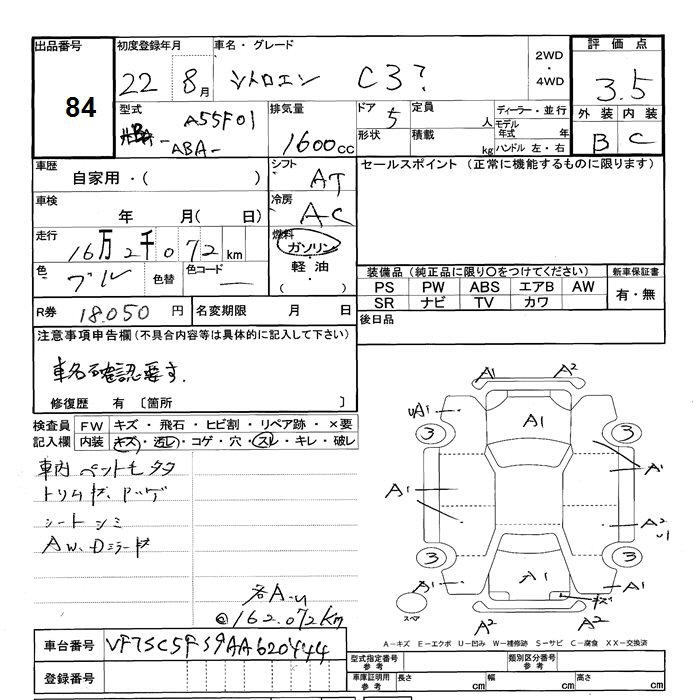 出品番号 初度登録年月 車名・グレード 2WD・4WD 評価点
84 22 8月 シトロエン C3? 3.5
型式 ABA- A55F01 排気量 1600cc ドア 5 定員 人 ディーラー・並行 外装 内装
形状 積載 kg モデル年式 年 ハンドル 左・右 B C
車歴 自家用・( ) シフト AT セールスポイント (正常に機能するものに限ります)
車検 年 月( 日) 冷房 AC
走行 16万2千072km 燃料 ガソリン・軽油・( )
色 ブルー 色替 色コード ー 装備品 (純正品に限り○をつけてください) 新車保証書
PS PW ABS エアB AW 有・無
SR ナビ TV カワ
R券 18.050円 名変期限 月 日 後日品
注意事項申告欄(不具合内容等は具体的に記入して下さい)
車名確認要す.
修復歴 有〔箇所 〕
検査員記入欄 FW キズ・飛石・ヒビ割・リペア跡・×要
内装 キズ・汚レ・コゲ・穴・スレ・キレ・破レ
車内
シートシミ
AW、Dミラーキズ
各A-u
@162.072km
A1 A2
uA1 A1
3 3
A1 A1
A2 u1
3 3
A1 A1 キズ A1
スペア A2 A2
A-キズ E-エクボ U-凹み W-補修跡 S-サビ C-腐食 XX-交換済
車台番号 VF7SC5FS9AA620444
型式指定番号 参考 類別区分番号 参考
登録番号 車庫証明用 参考 長さ cm 幅 cm 高さ cm